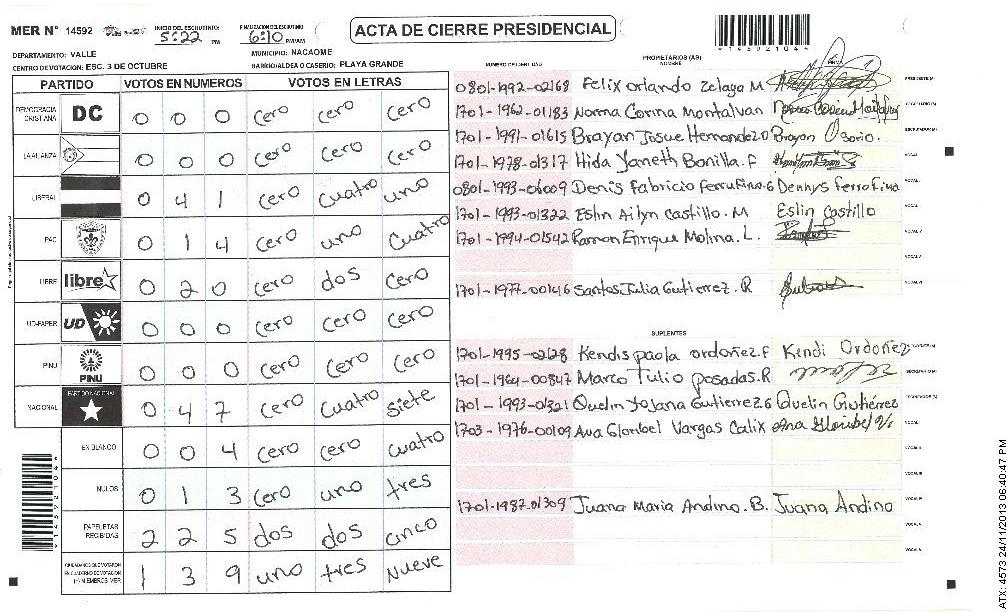 MER N° 14592
INICIO DEL ESCRUTINIO 5:22 PM
FINALIZACION DEL ESCRUTINIO 6:10 PM/AM
ACTA DE CIERRE PRESIDENCIAL
DEPARTAMENTO: VALLE MUNICIPIO: NACAOME
CENTRO DE VOTACION: ESC. 3 DE OCTUBRE BARRIO/ALDEA O CASERIO: PLAYA GRANDE
PARTIDO VOTOS EN NUMEROS VOTOS EN LETRAS
DEMOCRACIA CRISTIANA DC 0 0 0 Cero Cero Cero
LA ALIANZA 0 0 0 Cero Cero Cero
LIBERAL 0 4 1 Cero Cuatro uno
PAC 0 1 4 Cero uno Cuatro
LIBRE libre 0 2 0 Cero dos Cero
UD-FAPER UD 0 0 0 Cero Cero Cero
PINU PINU 0 0 0 Cero Cero Cero
NACIONAL PARTIDO NACIONAL 0 4 7 Cero Cuatro siete
EN BLANCO 0 0 4 Cero Cero Cuatro
NULOS 0 1 3 Cero uno tres
PAPELETAS RECIBIDAS 2 2 5 dos dos cinco
CIUDADANOS QUE VOTARON EN CUADERNO DE VOTACION (+) MIEMBROS MER 1 3 9 uno tres Nueve
NUMERO DE IDENTIDAD PROPIETARIOS (AS) NOMBRE FIRMA
0801-1992-02168 Felix Orlando Zelaya M PRESIDENTE (A)
1701-1962-01183 Norma Corina Montalvan SECRETARIO (A)
1701-1991-01615 Brayan Josue Hernandez O Brayan Osorio. ESCRUTADOR (A)
1701-1978-01317 Hilda Yaneth Bonilla.F VOCAL
0801-1993-06009 Denis Fabricio Ferrufino.G Dennys Ferrofino VOCAL
1701-1993-01322 Eslin Ailyn Castillo.M Eslin Castillo VOCAL
1701-1994-01542 Ramon Enrique Molina.L. VOCAL V
1701-1977-00146 Santos Julia Gutierrez.R VOCAL
SUPLENTES
1701-1995-02128 Kendis paola ordoñez.F Kendi Ordoñez
1701-1964-00847 Marco Tulio posadas.R SECRETARIO (A)
1701-1993-01321 Quelin Yojana Gutierrez G Quelin Gutiérrez
1703-1976-00109 Ana Gloribel Vargas Calix Ana Gloribel VOCAL
1701-1987-01309 Juana Maria Andino.B. Juana Andino VOCAL
ATX: 4573 24/11/2013 06:40:47 PM